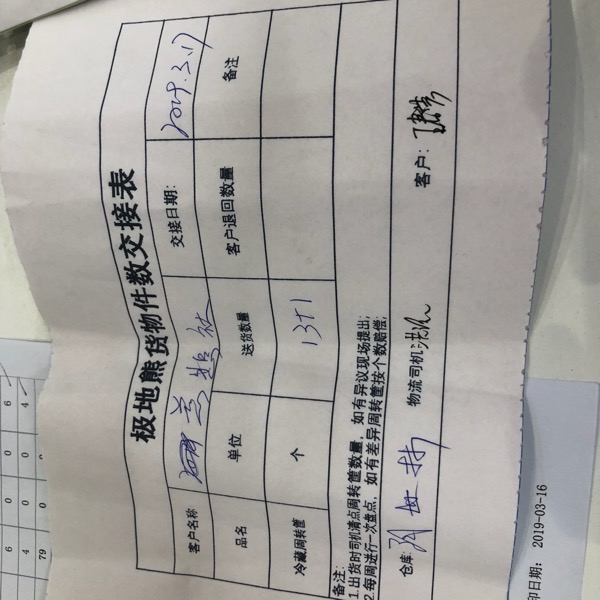 极地熊货物件数交接表
客户名称 交接日期: 2019.3.17
品名 单位 送货数量 客户退回数量 备注
冷藏周转筐 个 13T1
备注:
1.出货时司机清点周转筐数量, 如有异议现场提出;
2.每周进行一次盘点, 如有差异周转筐按个数赔偿;
仓库: 物流司机: 客户:
6 6 0 0 6
4 0 0 4
79 0
印日期: 2019-03-16